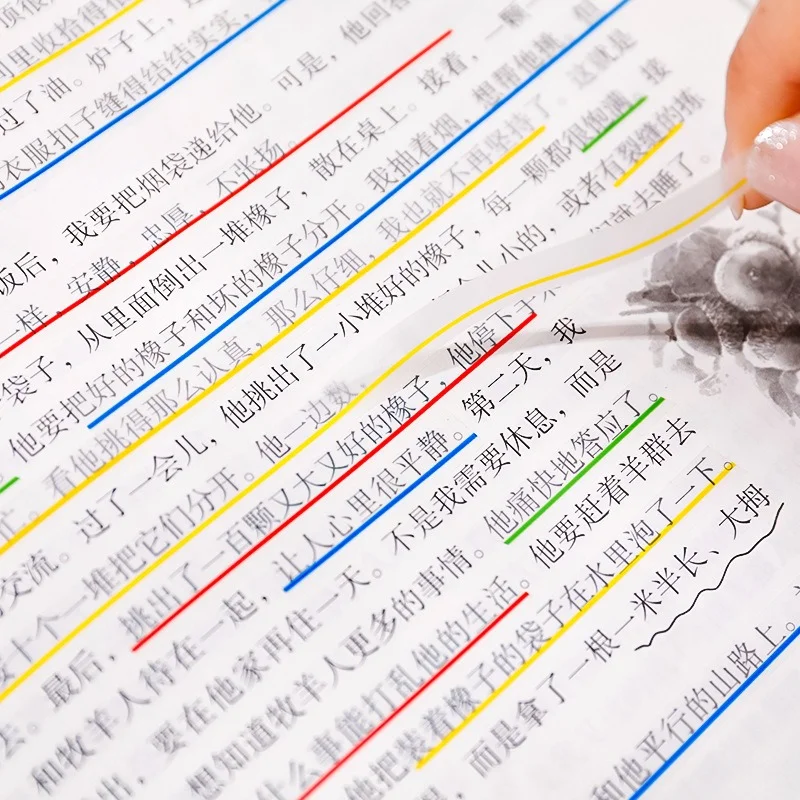 里收拾得很
过了油。炉子上，
衣服扣子缝得结结实实，
饭后，我要把烟袋递给他。可是，他回答
一样，安静，忠厚，不张扬。
袋子，从里面倒出一堆橡子，散在桌上。接着，一颗
他要把好的橡子和坏的橡子分开。我抽着烟，想帮他挑。但
看他挑得那么认真，那么仔细，我也就不再坚持了。这就是
交流。过了一会儿，他挑出了一小堆好的橡子，每一颗都很饱满。接
十个一堆把它们分开。他一边数，
小的，或者有裂缝的拣
就去睡了。
最后，挑出了一百颗又大又好的橡子，他停下
和牧羊人待在一起，让人心里很平静。第二天，我
要在他家再住一天。不是我需要休息，而是
想知道牧羊人更多的事情。他痛快地答应了。
什么事能打乱他的生活。他要赶着羊群去
他把装着橡子的袋子在水里泡了一下。
而是拿了一根一米半长、大拇
和他平行的山路上。